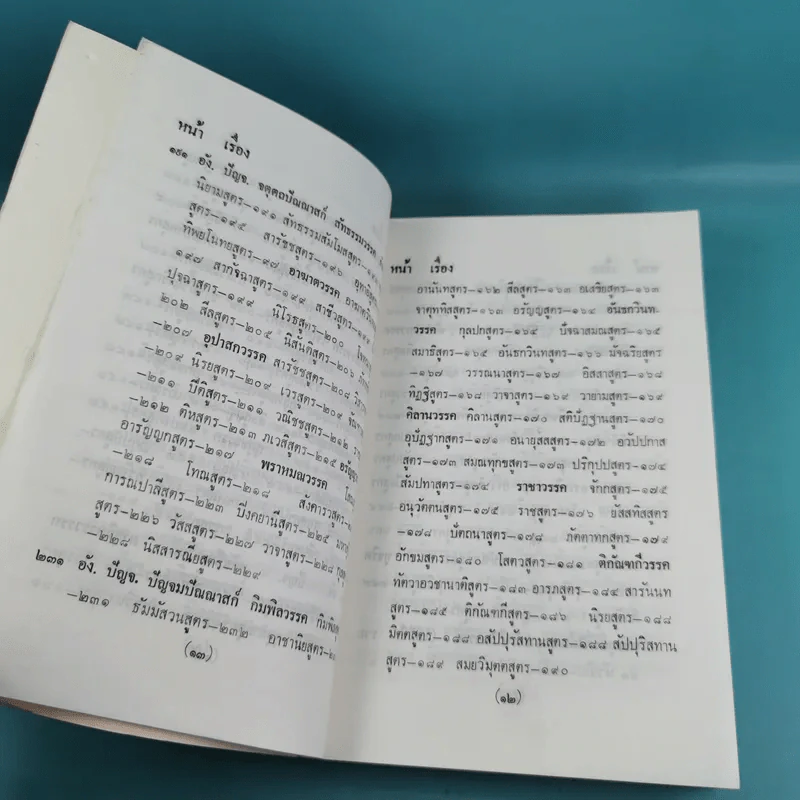 หน้า เรื่อง
๑๙๑ อัง. ปัญจ. จตุตถปัณณาสก์ สัทธรรมวรรค
นิยามสูตร–๑๙๑ สัทธรรมสัมโมสสูตร–๑๙
สูตร–๑๙๕ สารัชชสูตร–๑๙๖
ทิพยโนทยสูตร–๙๗ อาฆาตวรรค อาฆาตวิ
๑๙๗ สากัจฉาสูตร–๑๙๙ สาชีวสูตร–๑๙๙
ปุจฉาสูตร–๑๙๙ นิโรธสูตร–๒๐๐
๒๐๒ สีลสูตร–๒๐๕ นิสันติสูตร–๒๐๖
–๒๐๗ อุปาสกวรรค สารัชชสูตร–๒๐๘
–๒๐๙ นิรยสูตร–๒๐๙ เวรสูตร–๒๑๐
–๒๑๑ ปีติสูตร–๒๑๑ วณิชชสูตร–๒๑๒
–๒๑๒ คิหิสูตร–๒๑๓ ภเวสิสูตร–๒๑๕
อารัญญกสูตร–๒๑๗ พราหมณวรรค
–๒๑๘ โทณสูตร–๒๑๘ สังคารวสูตร
การณปาลีสูตร–๒๒๓ ปิงคิยานีสูตร–๒๒๕
สูตร–๒๒๖ วัสสสูตร–๒๒๗ วาจาสูตร–๒๒๘
–๒๒๘ นิสสารณียสูตร–๒๒๙
๒๓๑ อัง. ปัญจ. ปัญจมปัณณาสก์ กิมพิลวรรค
–๒๓๑ ธัมมัสวนสูตร–๒๓๒ อาชานิยสูตร
(๑๓)
หน้า เรื่อง
อานันทสูตร–๑๖๒ สีลสูตร–๑๖๓ อเสขิยสูตร–๑๖๓
จาตุททิสสูตร–๑๖๓ อรัญญสูตร–๑๖๔ อันธกวินท-
วรรค กุลปกสูตร–๑๖๔ ปัจฉาสมณสูตร–๑๖๕
สมาธิสูตร–๑๖๕ อันธกวินทสูตร–๑๖๖ มัจฉริยสูตร
–๑๖๗ วรรณนาสูตร–๑๖๗ อิสสาสูตร–๑๖๘
ทิฏฐิสูตร–๑๖๘ วาจาสูตร–๑๖๙ วายามสูตร–๑๖๙
คิลานวรรค คิลานสูตร–๑๗๐ สติปัฏฐานสูตร–๑๗๐
อุปัฏฐากสูตร–๑๗๑ อนายุสสสูตร–๑๗๒ อวัปปกาส
สูตร–๑๗๓ สมณทุกขสูตร–๑๗๓ ปริกุปปสูตร–๑๗๔
สัมปทาสูตร–๑๗๔ ราชาวรรค จักกสูตร–๑๗๕
อนุวัตตนสูตร–๑๗๕ ราชสูตร–๑๗๖ ยัสสทิสสูตร
–๑๗๘ ปัตถนาสูตร–๑๗๘ ภัตตาทกสูตร–๑๗๙
อักขมสูตร–๑๘๐ โสตวสูตร–๑๘๑ ติกัณฑกีวรรค
ทัตวาอวชานาติสูตร–๑๘๓ อารภสูตร–๑๘๔ สารันทท
สูตร–๑๘๕ ติกัณฑกีสูตร–๑๘๖ นิรยสูตร–๑๘๘
มิตตสูตร–๑๘๘ อสัปปุริสทานสูตร–๑๘๘ สัปปุริสทาน
สูตร–๑๘๙ สมยวิมุตตสูตร–๑๙๐
(๑๒)